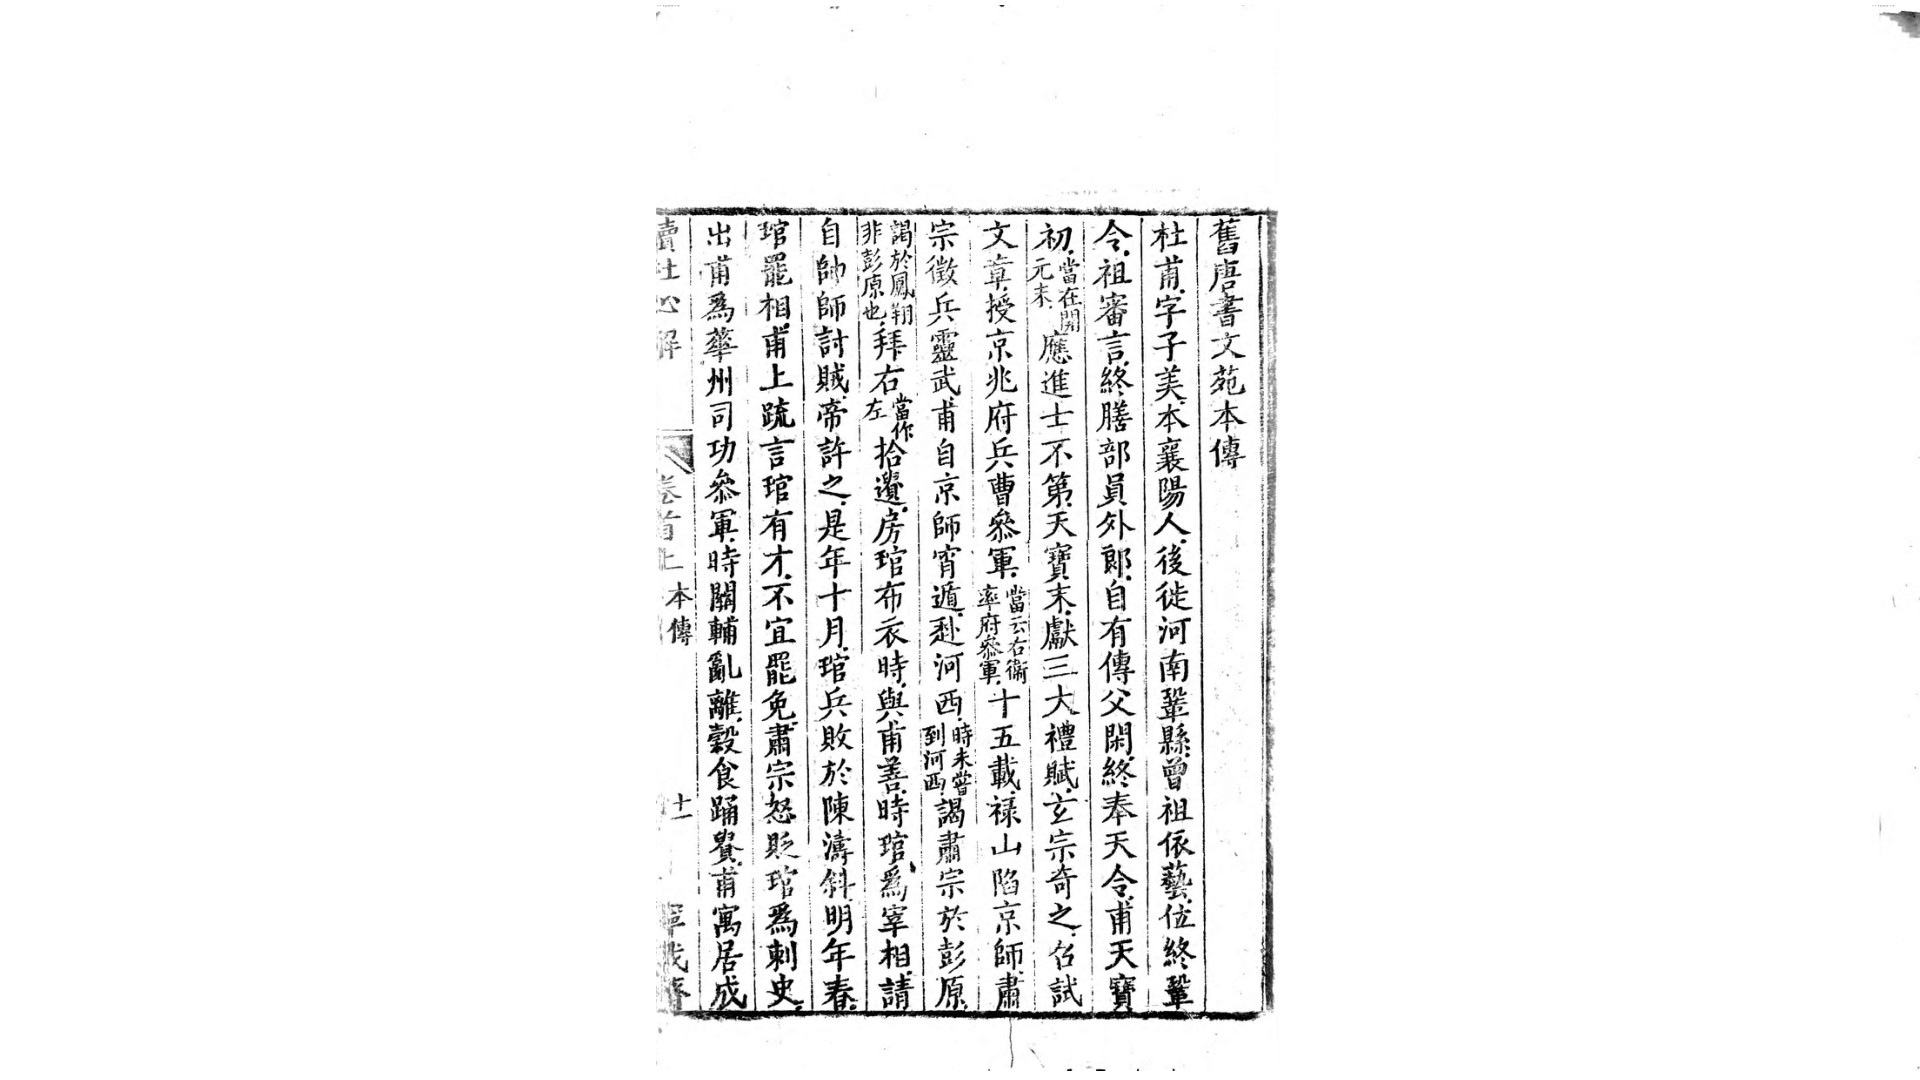 舊唐書文苑本傳
杜甫字子美本襄陽人後徙河南鞏縣曾祖依藝位終鞏
令祖審言終膳部員外郎自有傳父閑終奉天令甫天寶
初當在開元末應進士不第天寶末獻三大禮賦玄宗奇之召試
文章授京兆府兵曹叅軍當云右衞率府叅軍十五載祿山陷京師肅
宗徵兵靈武甫自京師宵遁赴河西時未嘗到河西謁肅宗於彭原
謁於鳳翔非彭原也拜右當作左拾遺房琯布衣時與甫善時琯爲宰相請
自帥師討賊帝許之是年十月琯兵敗於陳濤斜明年春
琯罷相甫上疏言琯有才不宜罷免肅宗怒貶琯爲刺史
出甫爲華州司功叅軍時關輔亂離穀食踊貴甫寓居成
讀杜心解 卷首上 本傳 十一 寧我齋